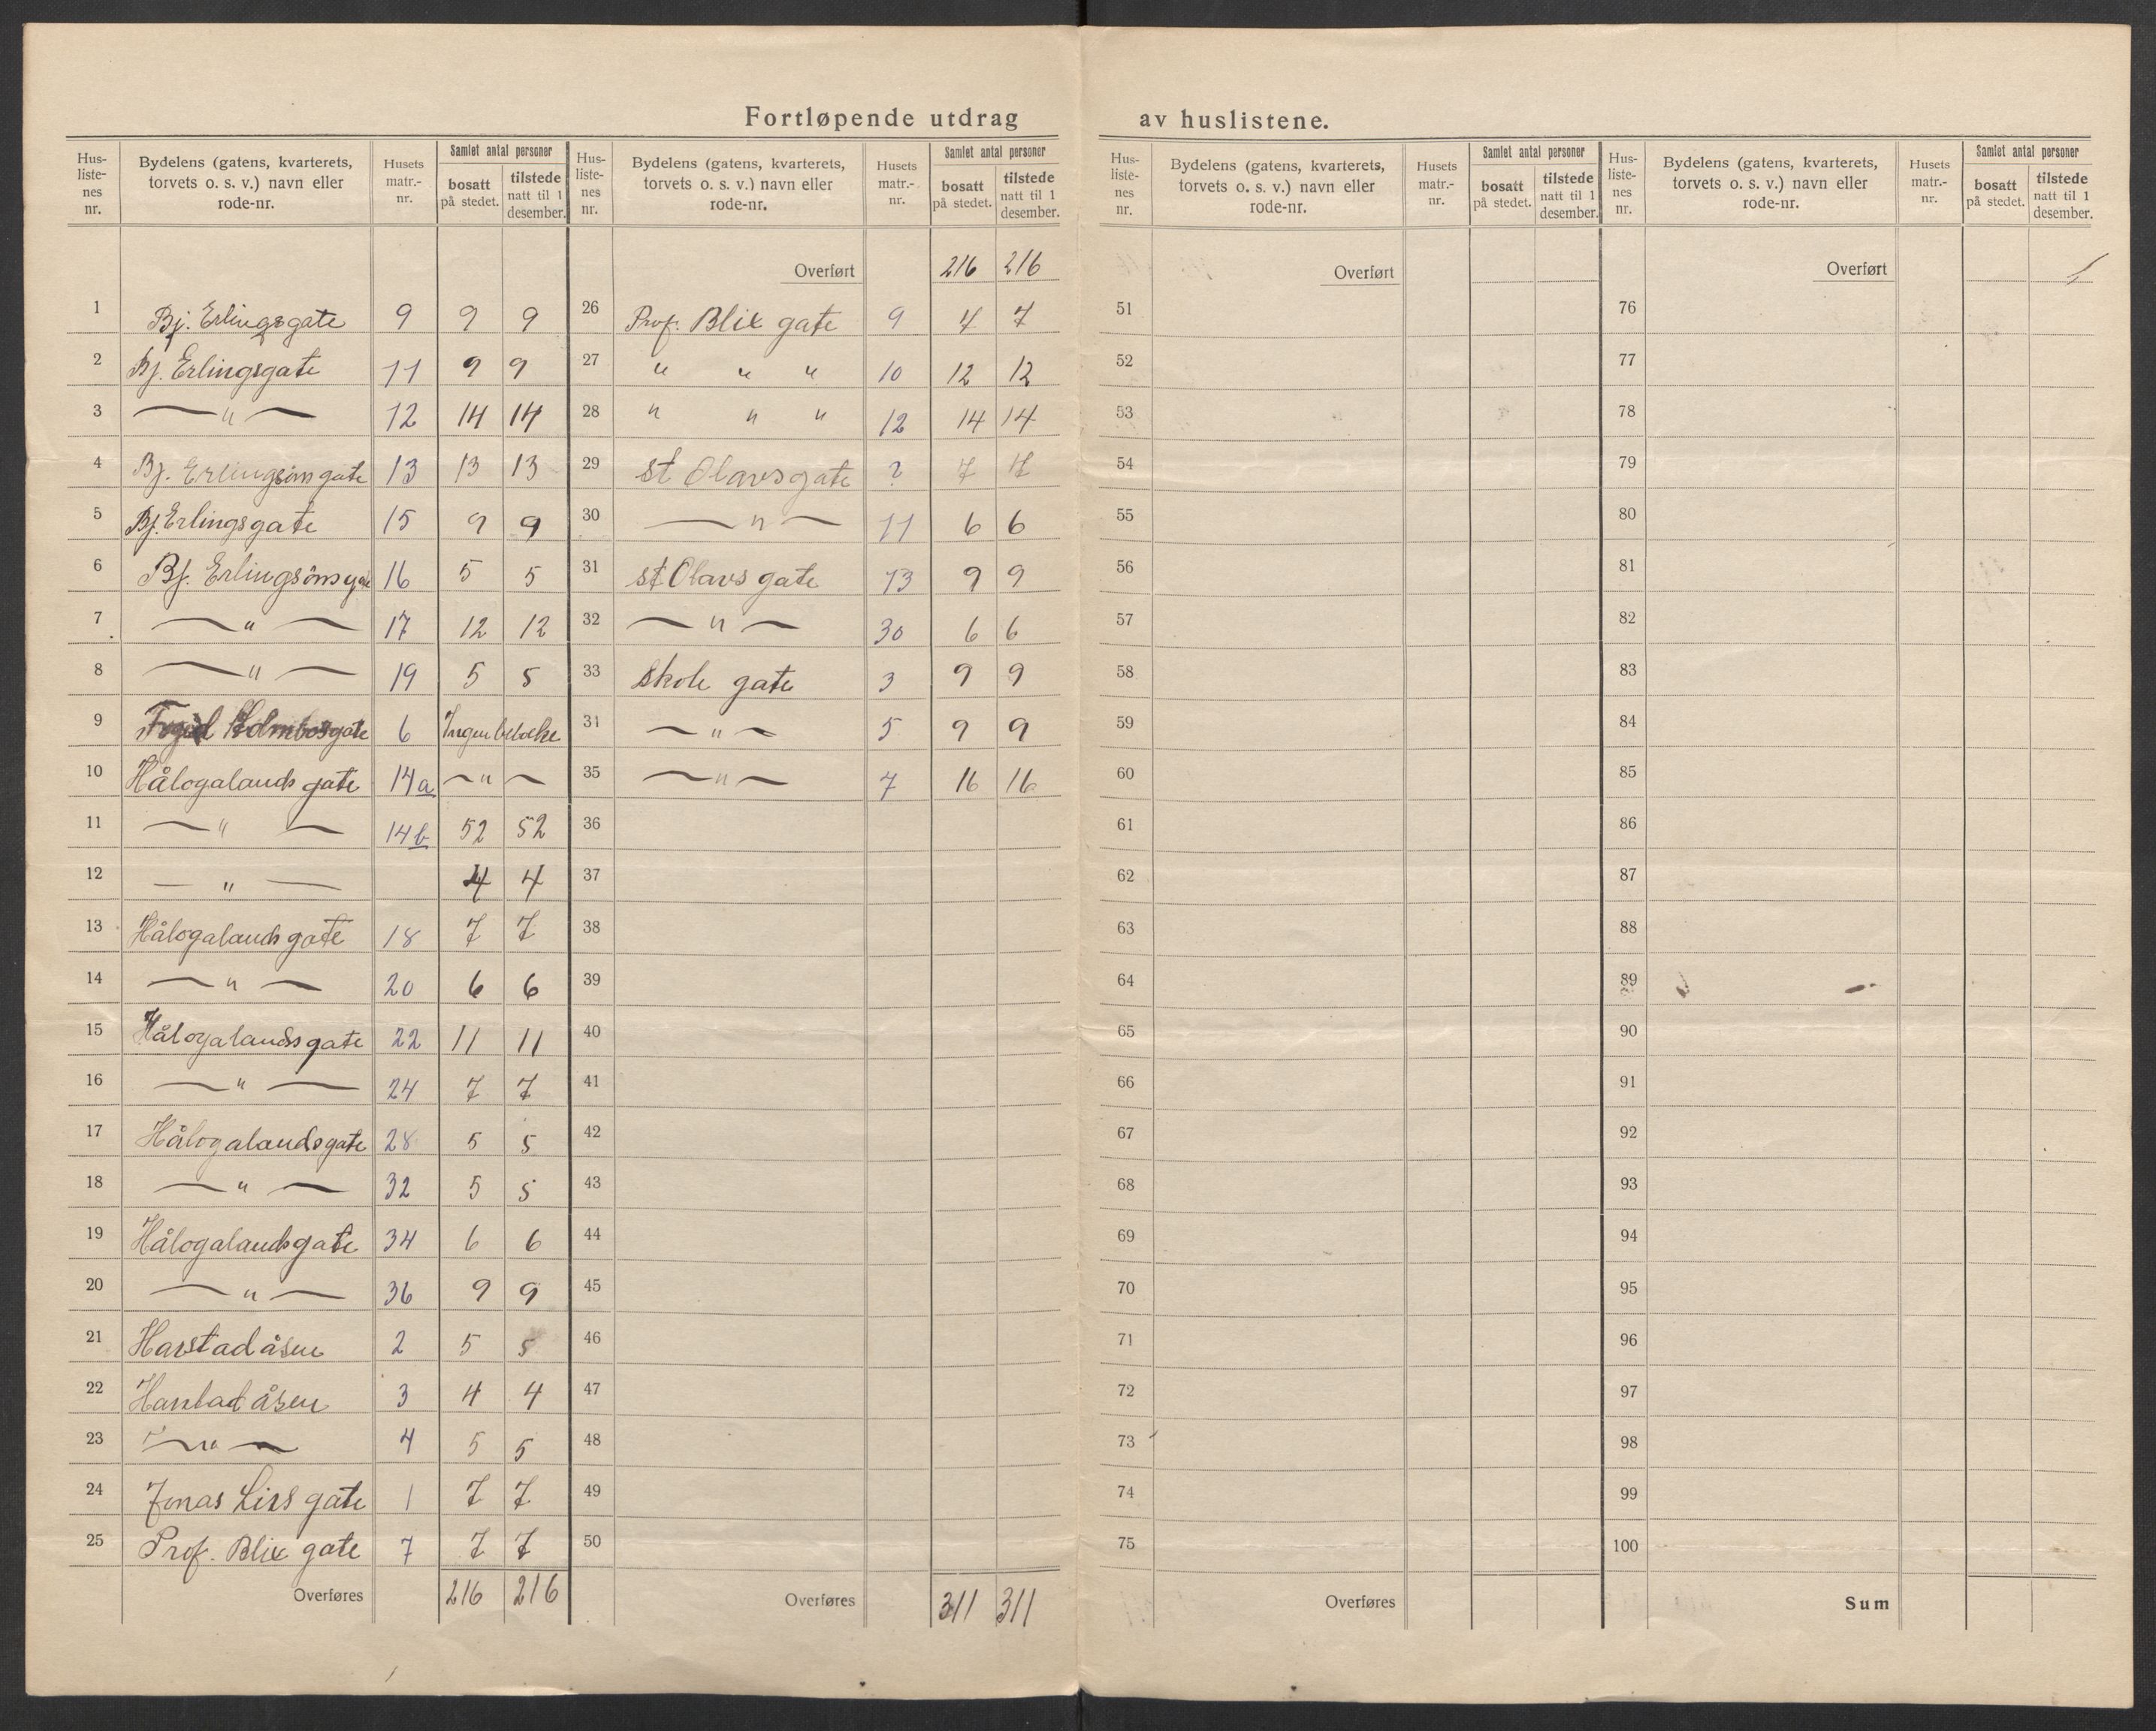 Fortløpende utdrag av huslistene.
Hus-listenes nr. Bydelens (gatens, kvarterets, torvets o. s. v.) navn eller rode-nr. Husets matr.-nr. Samlet antal personer bosatt på stedet. tilstede natt til 1 desember.
1 Bj. Erlingsgate 9 9 9
2 Bj. Erlingsgate 11 9 9
3 — " — 12 14 14
4 Bj. Erlingsöns gate 13 13 13
5 Bj. Erlingsgate 15 9 9
6 Bj. Erlingsöns gate 16 5 5
7 — " — 17 12 12
8 — " — 19 5 5
9 Holmboesgate 6 Ingen beboelse
10 Hålogalands gate 14a — " —
11 — " — 14b 52 52
12 — " — 4 4
13 Hålogalands gate 18 7 7
14 — " — 20 6 6
15 Hålogalands gate 22 11 11
16 — " — 24 7 7
17 Hålogalandsgate 28 5 5
18 — " — 32 5 5
19 Hålogalandsgate 34 6 6
20 — " — 36 9 9
21 Harstadåsen 2 5 5
22 Harstad åsen 3 4 4
23 — " — 4 5 5
24 Jonas Lies gate 1 7 7
25 Prof. Blix gate 7 7 7
Overføres 216 216
Hus-listenes nr. Bydelens (gatens, kvarterets, torvets o. s. v.) navn eller rode-nr. Husets matr.-nr. Samlet antal personer bosatt på stedet. tilstede natt til 1 desember.
Overført 216 216
26 Prof. Blix gate 9 7 7
27 " " " 10 12 12
28 " " " 12 14 14
29 St Olavsgate ? 7 7
30 — " — 11 6 6
31 St Olavs gate 13 9 9
32 — " — 30 6 6
33 Skole gate 3 9 9
31 — " — 5 9 9
35 — " — 7 16 16
36
37
38
39
40
41
42
43
44
45
46
47
48
49
50
Overføres 311 311
Hus-listenes nr. Bydelens (gatens, kvarterets, torvets o. s. v.) navn eller rode-nr. Husets matr.-nr. Samlet antal personer bosatt på stedet. tilstede natt til 1 desember.
Overført
51
52
53
54
55
56
57
58
59
60
61
62
63
64
65
66
67
68
69
70
71
72
73
74
75
Overføres
Hus-listenes nr. Bydelens (gatens, kvarterets, torvets o. s. v.) navn eller rode-nr. Husets matr.-nr. Samlet antal personer bosatt på stedet. tilstede natt til 1 desember.
Overført
76
77
78
79
80
81
82
83
84
85
86
87
88
89
90
91
92
93
94
95
96
97
98
99
100
Sum